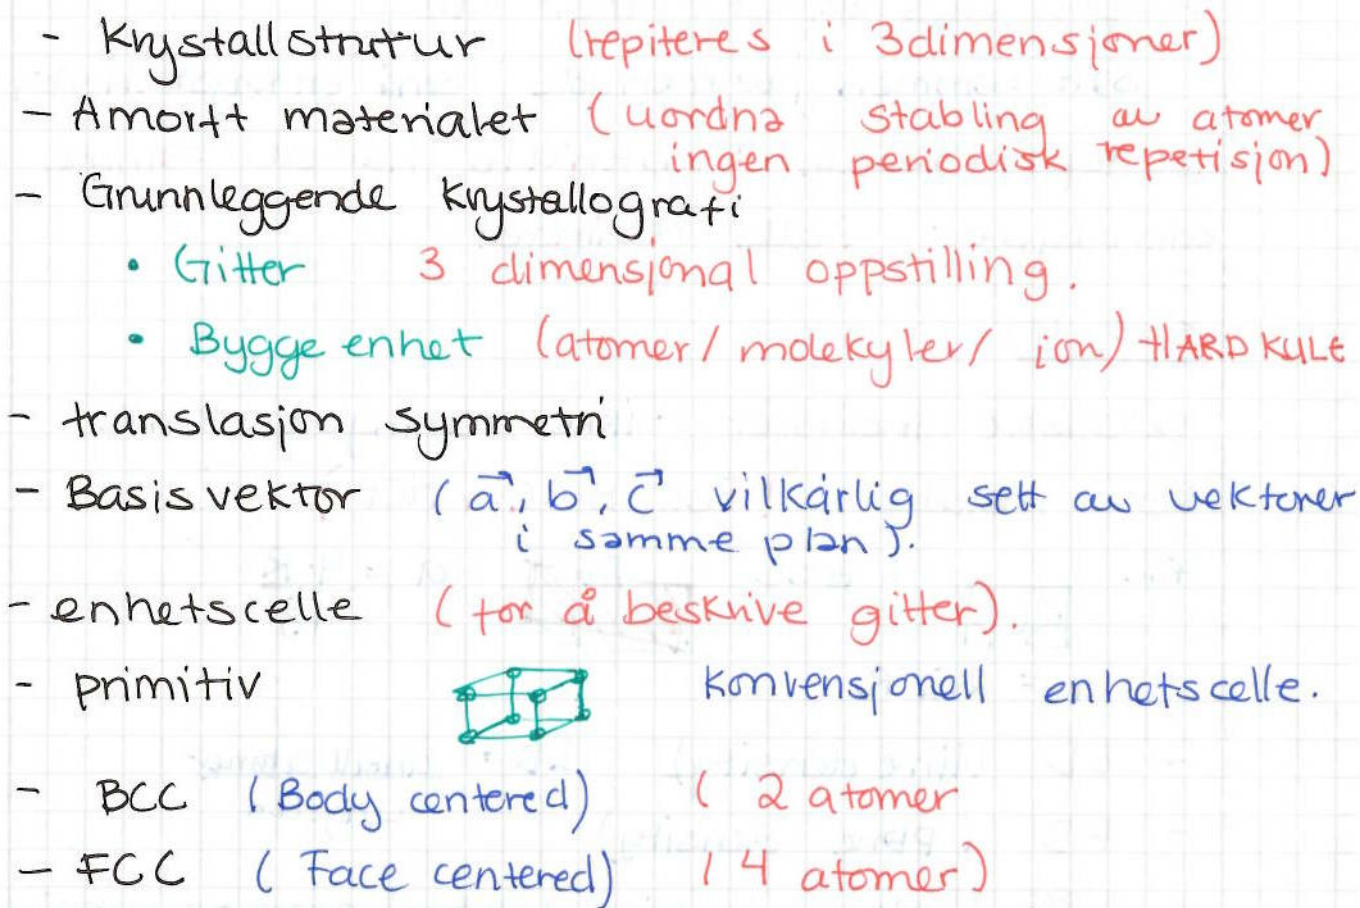 - Krystallstrutur (repiteres i 3dimensjoner)
- Amorft materialet (uordna stabling av atomer
ingen periodisk repetisjon)
- Grunnleggende krystallografi
• Gitter 3 dimensjonal oppstilling.
• Bygge enhet (atomer/molekyler/ ion) HARD KULE
- translasjon symmetri
- Basis vektor (a⃗, b⃗, c⃗ vilkårlig sett av vektorer
i samme plan).
- enhetscelle (for å beskrive gitter).
- primitiv konvensjonell enhetscelle.
- BCC (Body centered) ( 2 atomer
- FCC ( Face centered) ( 4 atomer)